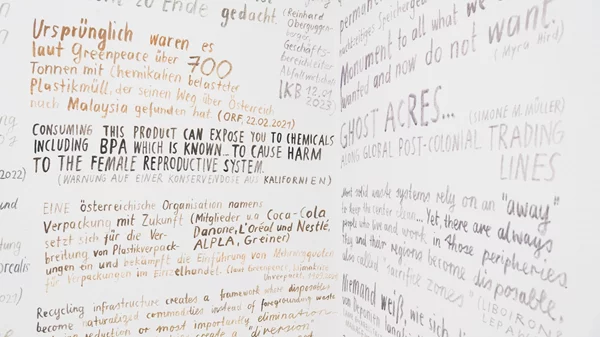 zu Ende gedacht. (Reinhard
Geschäfts-
IKB 12.01
2023)
Ursprünglich waren es
laut Greenpeace über 700
Tonnen mit Chemikalien belasteter
Plastikmüll, der seinen Weg über Österreich
nach Malaysia gefunden hat. (ORF, 22.02.2021)
CONSUMING THIS PRODUCT CAN EXPOSE YOU TO CHEMICALS
INCLUDING BPA WHICH IS KNOWN... TO CAUSE HARM
TO THE FEMALE REPRODUCTIVE SYSTEM.
(WARNUNG AUF EINER KONSERVENDOSE AUS KALIFORNIEN)
EINE österreichische Organisation namens
Verpackung mit Zukunft (Mitglieder u.a Coca-Cola
setzt sich für die Ver- Danone, L'Oréal und Nestlé,
breitung von Plastikverpack- ALPLA, Greiner)
ungen ein und bekämpft die Einführung von
für Verpackungen im Einzelhandel.
Recycling infrastructure creates a framework where disposables
become naturalized commodities instead of foregrounding waste
reduction or most importantly elimination
create a "diversion"
permanent
Monument to all what we
wanted and now do not want.
(Myra Hird)
GHOST ACRES... (SIMONE M. MÜLLER)
ALONG GLOBAL POST-COLONIAL TRADING
LINES
solid waste systems rely on an "away"
to keep the center clean... Yet, there are always
people who live and work in those peripheries.
They and their regions become disposable,
also called "sacrifice zones" (LIBOIRON
LEPAW
Niemand weiß, wie sich die
von Deponien lang